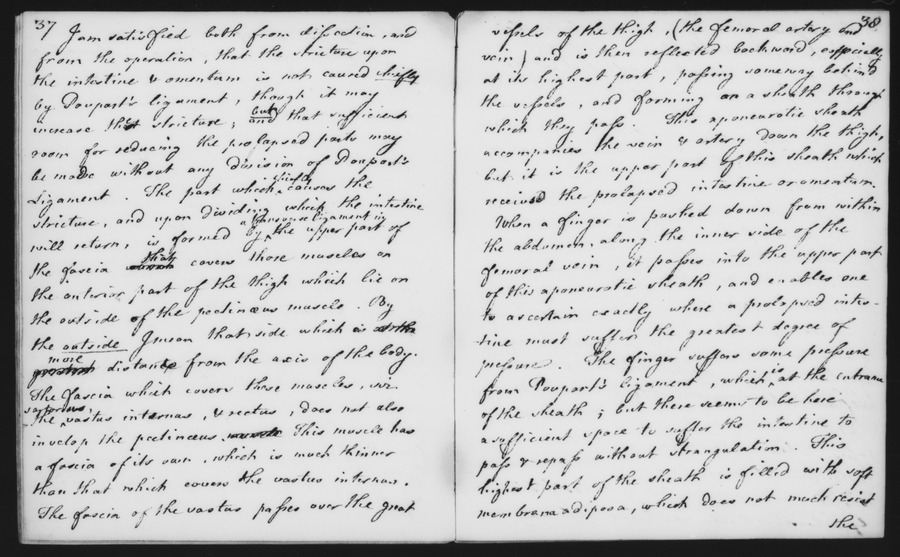 37
I am satisfied both from dissection, and
from the operation, that the stricture upon
the intestine & omentum is not caused chiefly
by Poupart's ligament, though it may
increase that stricture; but and that sufficient
room for reducing the prolapsed parts may
be made without any division of Poupart's
Ligament. The part which chiefly causes the
stricture, and upon dividing which the intestine
will return, is formed by a transverse ligament in the upper part of
the fascia that covers those muscles on
the anterior part of the thigh which lie on
the outside of the pectinæus muscle. By
the outside I mean that side which is
more distant from the axis of the body.
The fascia which covers those muscles, viz.
the sartorius, vastus internus, & rectus, does not also
invelop the pectinæus muscle This muscle has
a fascia of its own, which is much thinner
than that which covers the vastus internus.
The fascia of the vastus passes over the great
38
vessels of the thigh, (the femoral artery and
vein) and is then reflected backward, especially
at its highest part, passing someway behind
the vessels, and forming a sheath through
which they pass. This aponeurotic sheath
accompanies the vein & artery down the thigh,
but it is the upper part of this sheath which
received the prolapsed intestine or omentum.
When a finger is pushed down from within
the abdomen, along the inner side of the
femoral vein, it passes into the upper part
of this aponeurotic sheath, and enables one
to ascertain exactly where a prolapsed intes-
tine must suffer the greatest degree of
pressure. The finger suffers some pressure
from Poupart's ligament, which is at the entrance
of the sheath; but there seems to be here
a sufficient space to suffer the intestine to
pass & repass without strangulation. This
highest part of the sheath is filled with soft
membrana adiposa, which does not much resist
the